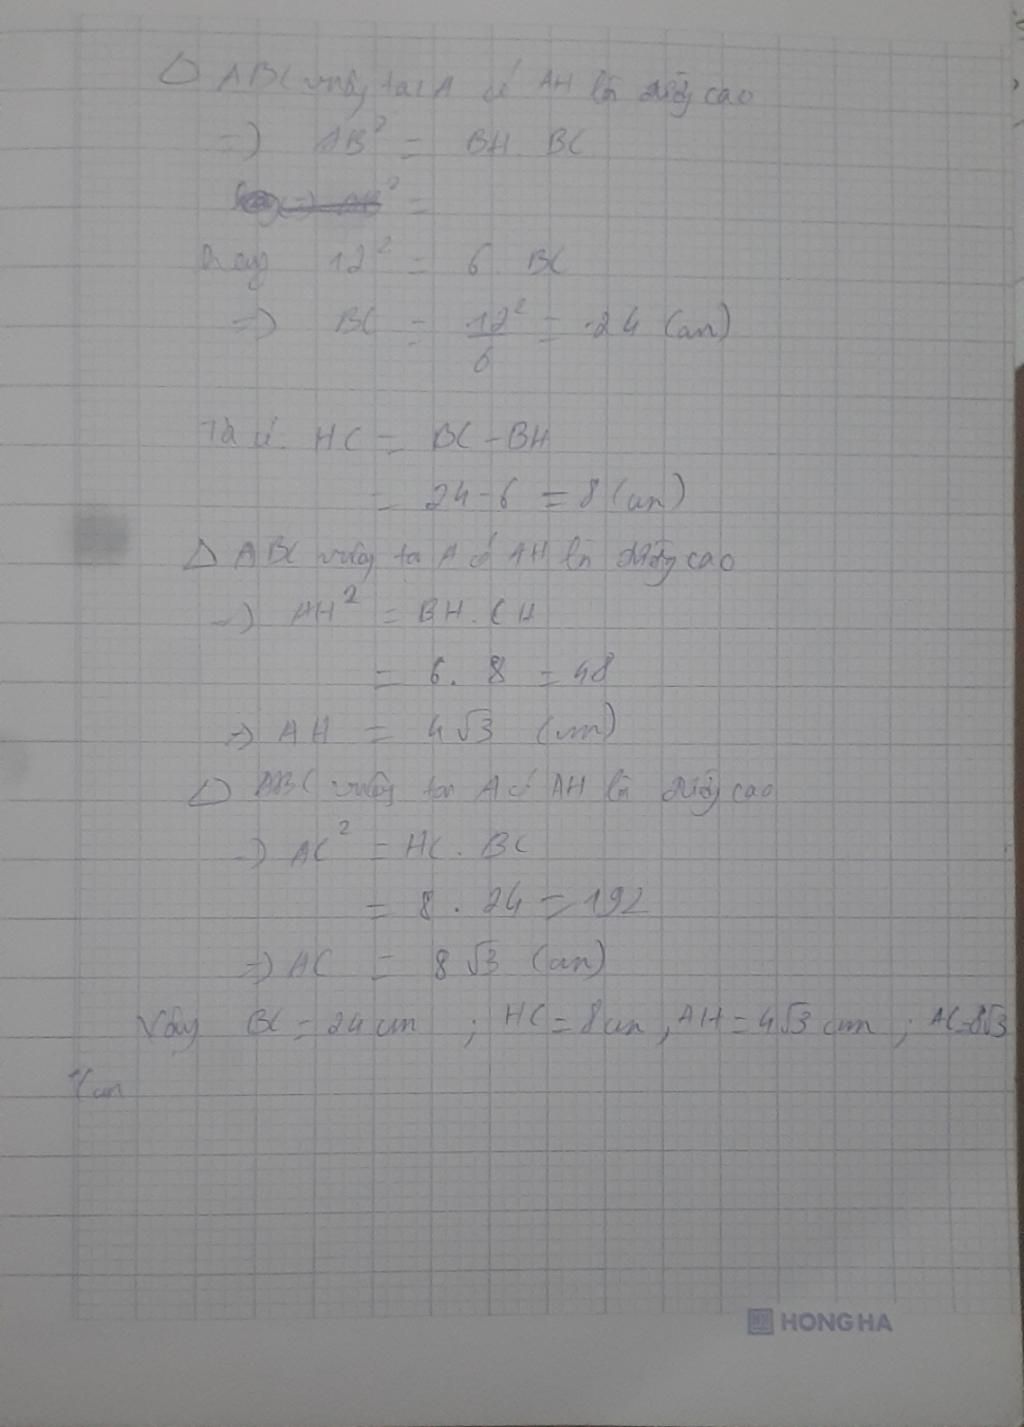 Δ ABC vuông tại A có AH là đường cao
=) AB² = BH BC
=
hay 12² = 6. BC
=) BC = 12²/6 = 24 (cm)
Ta có HC = BC - BH
= 24 - 6 = 8 (cm)
Δ ABC vuông tại A có AH là đường cao
=) AH² = BH. CH
= 6. 8 = 48
=) AH = 4√3 (cm)
Δ ABC vuông tại A có AH là đường cao
=) AC² = HC. BC
= 8 . 24 = 192
=) AC = 8√3 (cm)
Vậy BC = 24 cm ; HC = 8 cm , AH = 4√3 cm ; AC = 8√3
cm
HONG HA